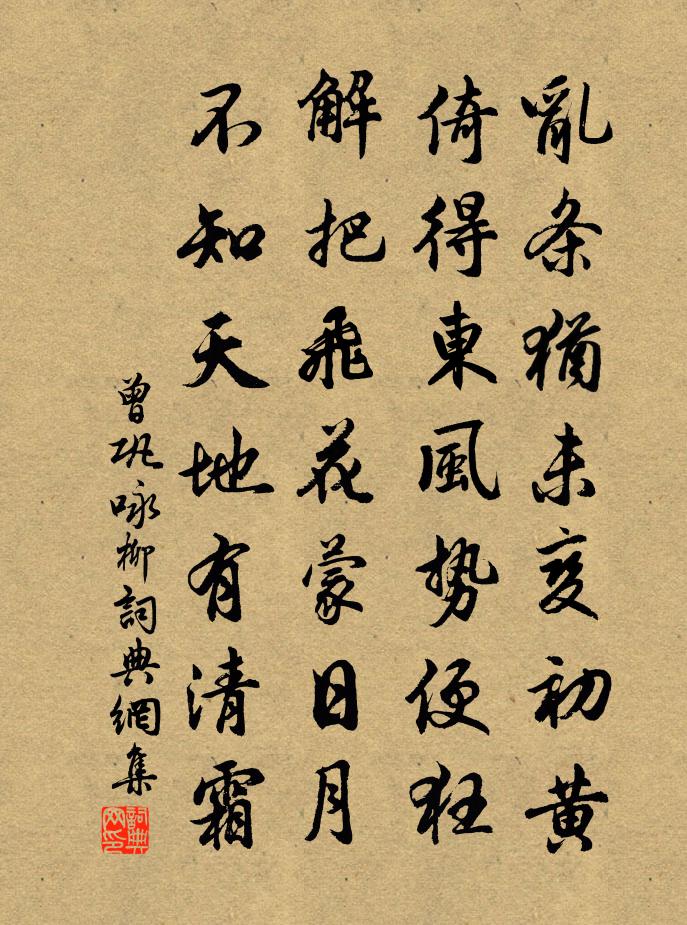 亂条猶未变初黄
倚得東風势便狂
解把飛花蒙日月
不知天地有清霜
曾巩咏柳詞典網集
詞典网印